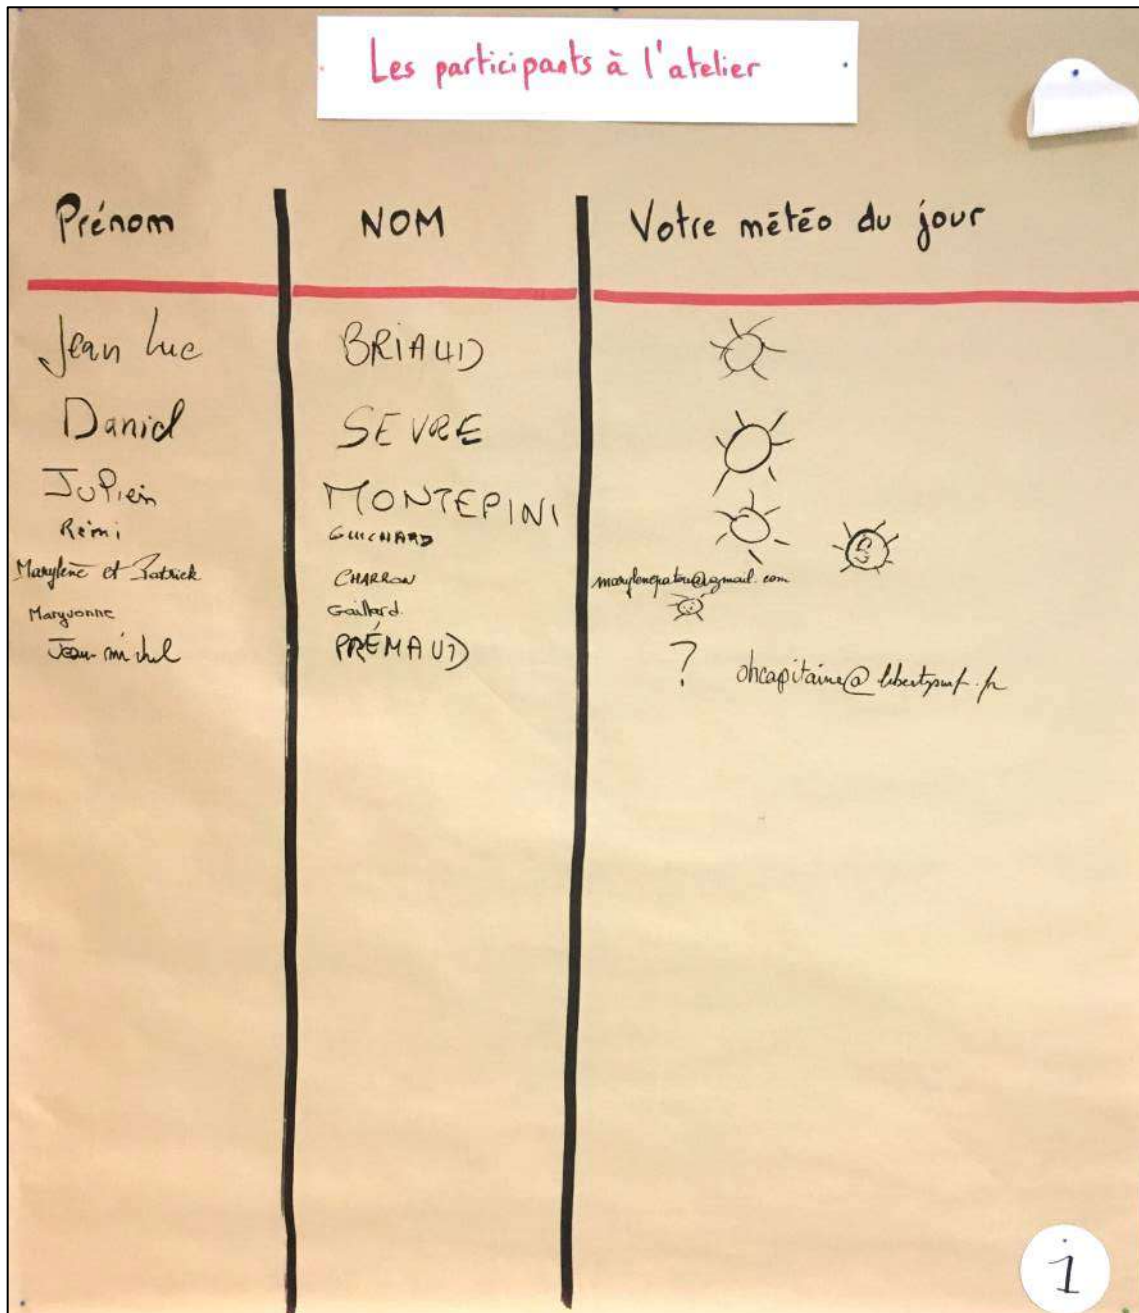 Les participants à l'atelier
Prénom NOM Votre météo du jour
Jean Luc BRIAUD
Daniel SEVRE
Julien MONTEPINI
Rémi GUICHARD
Marylène et Patrick CHARRON marylenepatou@gmail.com
Maryvonne Gaillard
Jean-michel PRÉMAUD ? ohcapitaine@libertysurf.fr
1